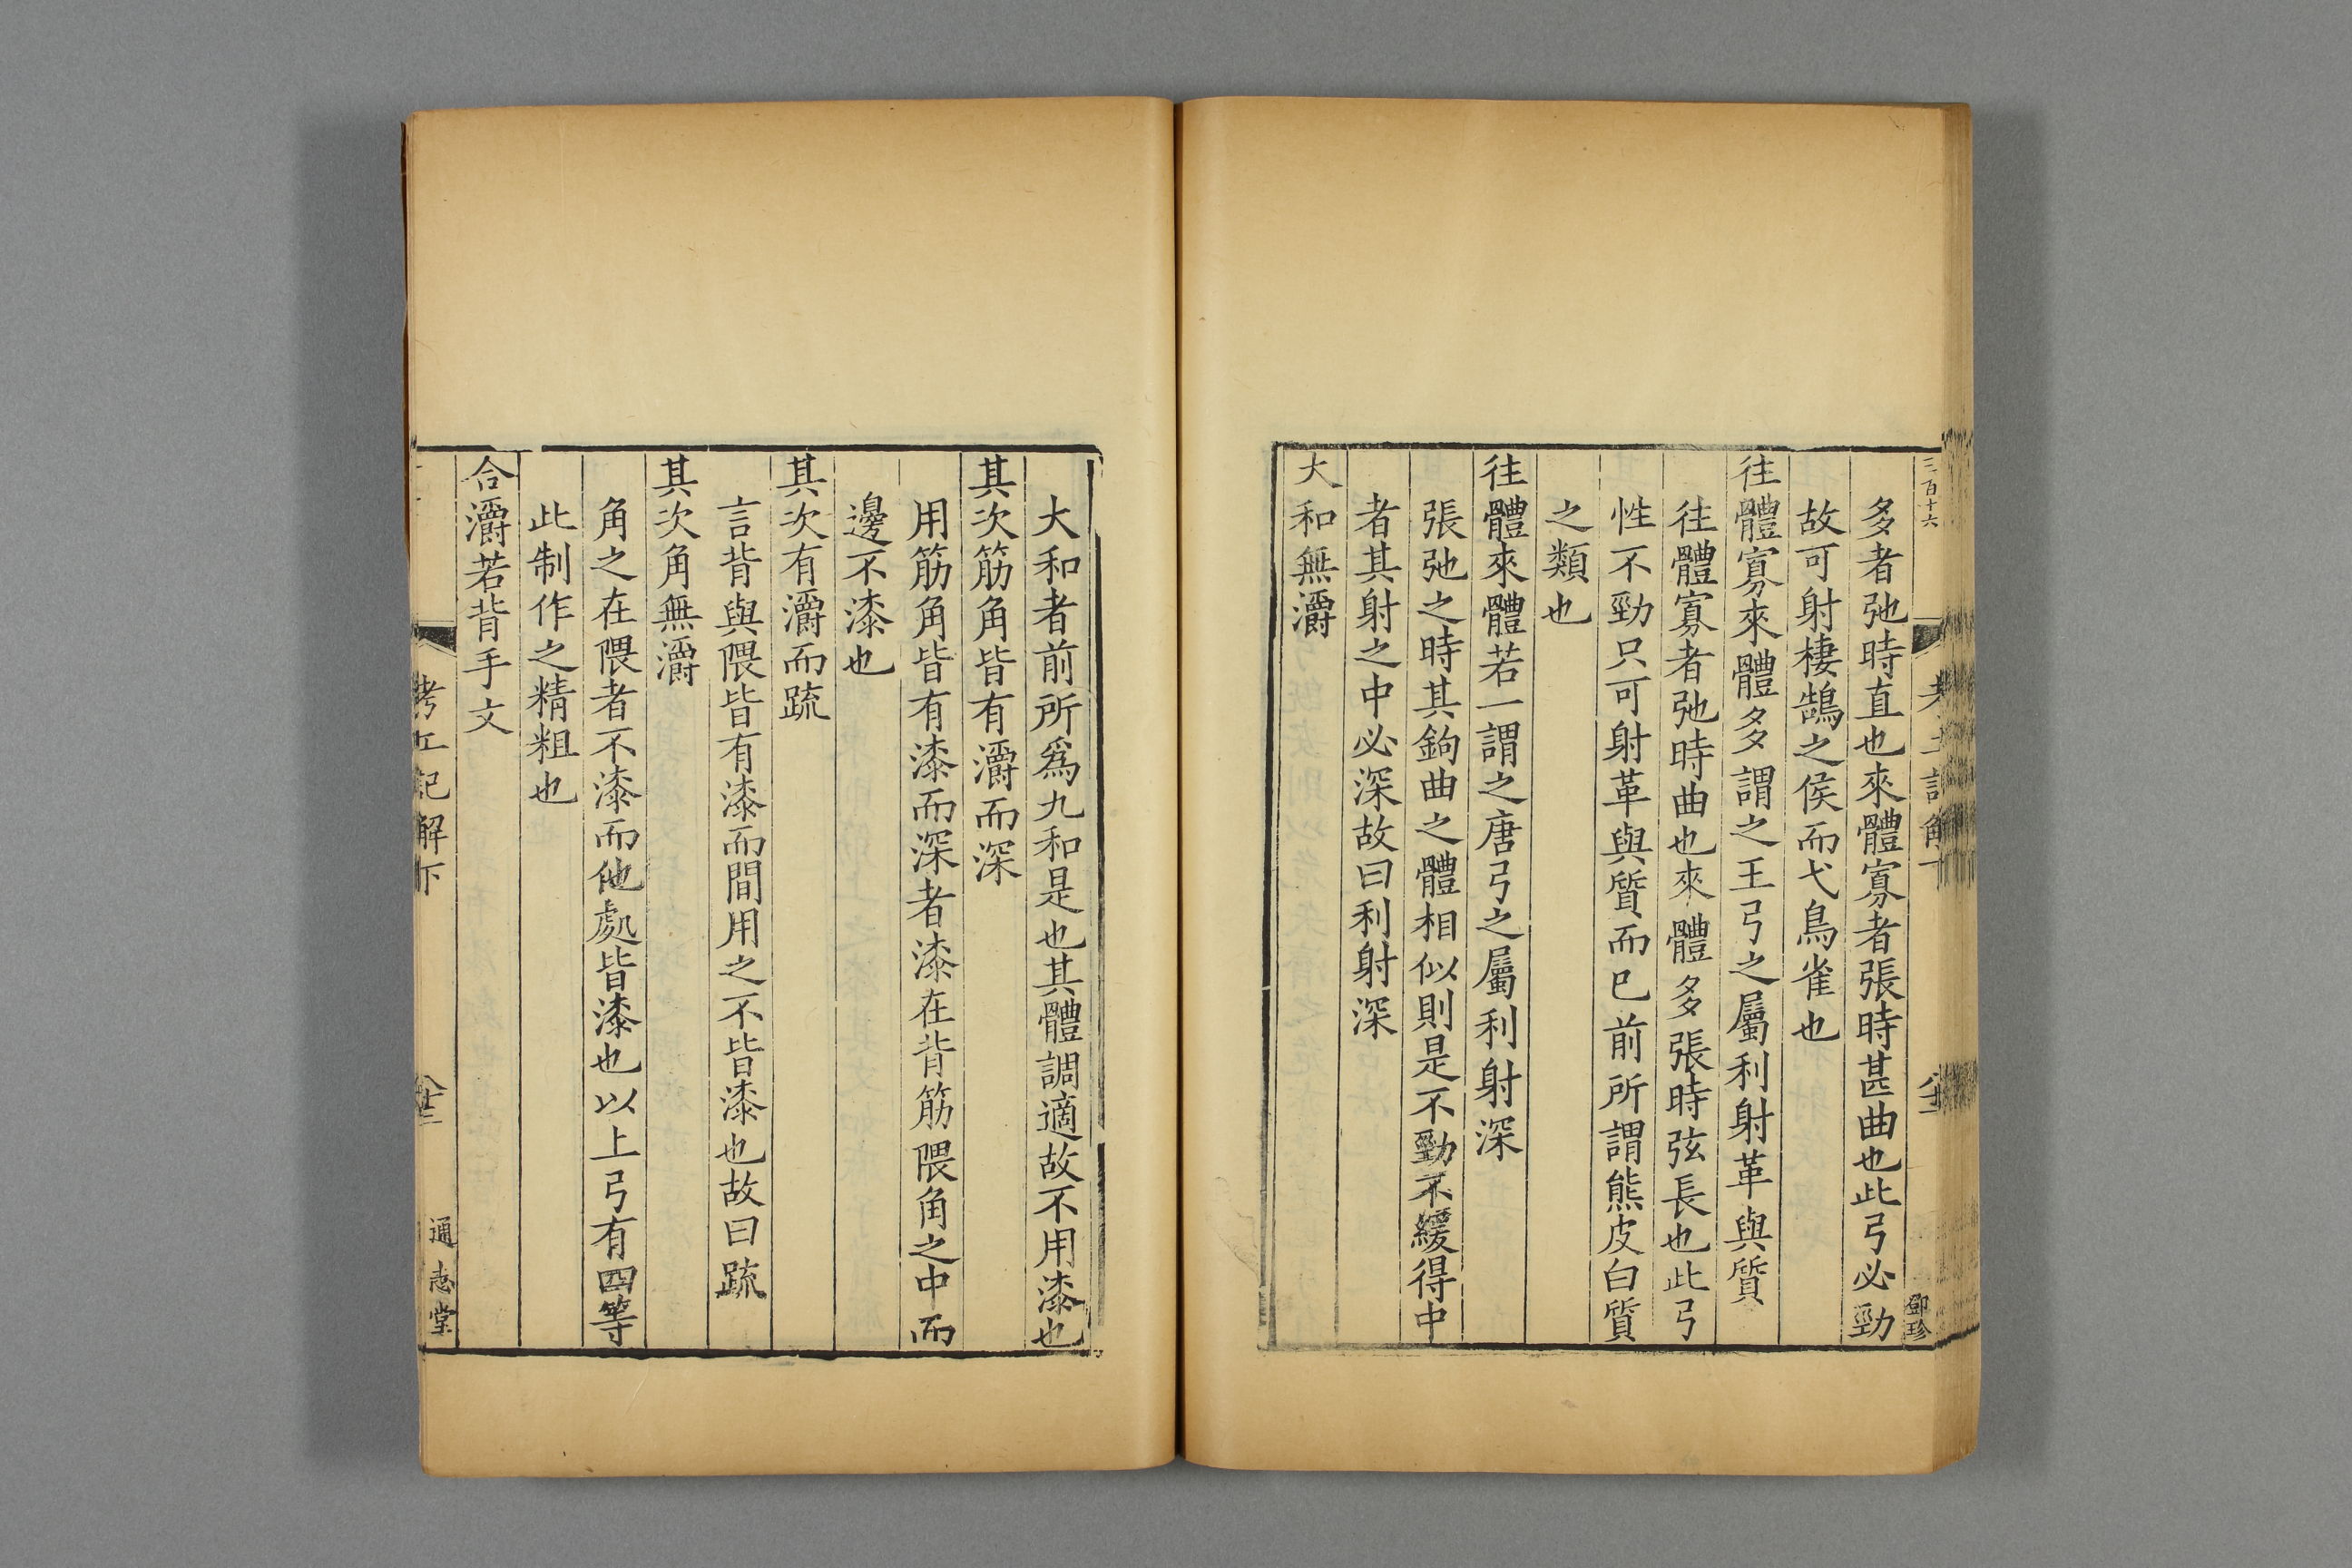 三百十六
鄧珍
多者弛時直也來體寡者張時甚曲也此弓必勁
故可射棲鵠之侯而弋鳥雀也
往體寡來體多謂之王弓之屬利射革與質
往體寡者弛時曲也來體多張時弦長也此弓
性不勁只可射革與質而已前所謂熊皮白質
之類也
往體來體若一謂之唐弓之屬利射深
張弛之時其鉤曲之體相似則是不勁不緩得中
者其射之中必深故曰利射深
大和無灂
大和者前所爲九和是也其體調適故不用漆也
其次筋角皆有灂而深
用筋角皆有漆而深者漆在背筋隈角之中而
邊不漆也
其次有灂而䟽
言背與隈皆有漆而間用之不皆漆也故曰䟽
其次角無灂
角之在隈者不漆而他處皆漆也以上弓有四等
此制作之精粗也
合灂若背手文
考工記解下
通志堂